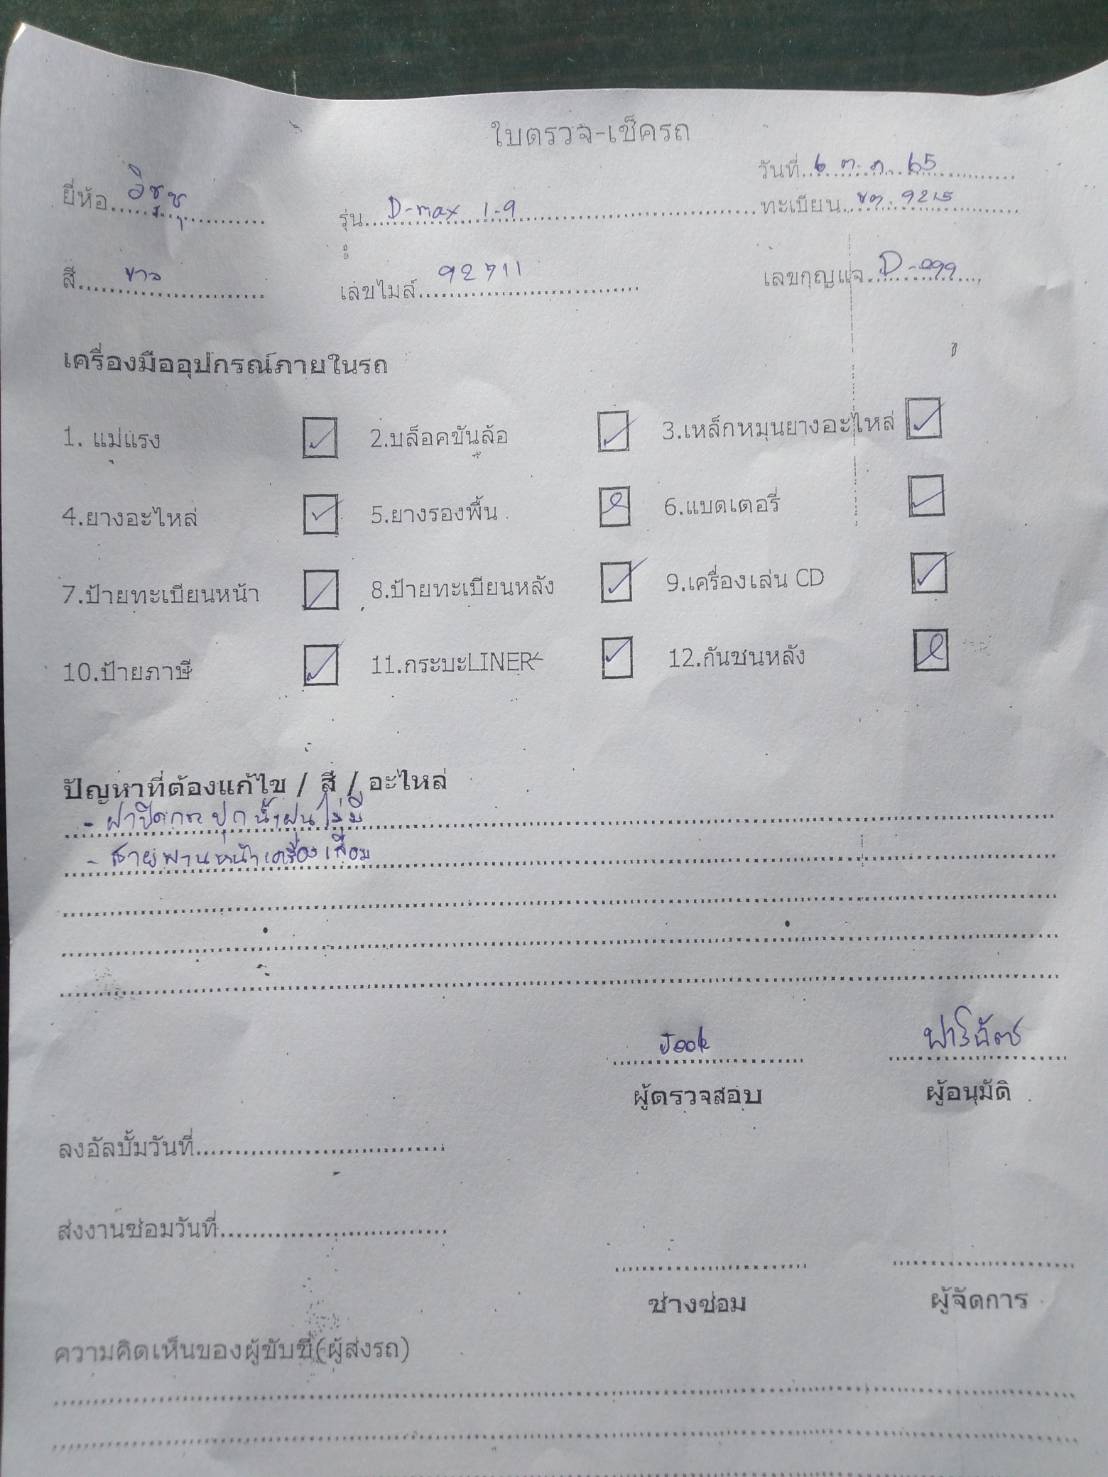 ใบตรวจ-เช็ครถ
วันที่ 6 ต.ค. 65
ยี่ห้อ อีซูซุ รุ่น D-max 1.9 ทะเบียน ขต. 9215
สี ขาว เลขไมล์ 92711 เลขกุญแจ D-099
เครื่องมืออุปกรณ์ภายในรถ
1. แม่แรง ✓ 2.บล็อคขันล้อ ✓ 3.เหล็กหมุนยางอะไหล่ ✓
4.ยางอะไหล่ ✓ 5.ยางรองพื้น 6.แบตเตอรี่ ✓
7.ป้ายทะเบียนหน้า ✓ 8.ป้ายทะเบียนหลัง ✓ 9.เครื่องเล่น CD ✓
10.ป้ายภาษี ✓ 11.กระบะLINER ✓ 12.กันชนหลัง
ปัญหาที่ต้องแก้ไข / สี / อะไหล่
- ฝาปิดกระปุกน้ำฝนไม่มี
- สายพานหน้าเครื่องเสื่อม
Jook
ผู้ตรวจสอบ ผู้อนุมัติ
ลงอัลบั้มวันที่
ส่งงานซ่อมวันที่
ช่างซ่อม ผู้จัดการ
ความคิดเห็นของผู้ขับขี่(ผู้ส่งรถ)